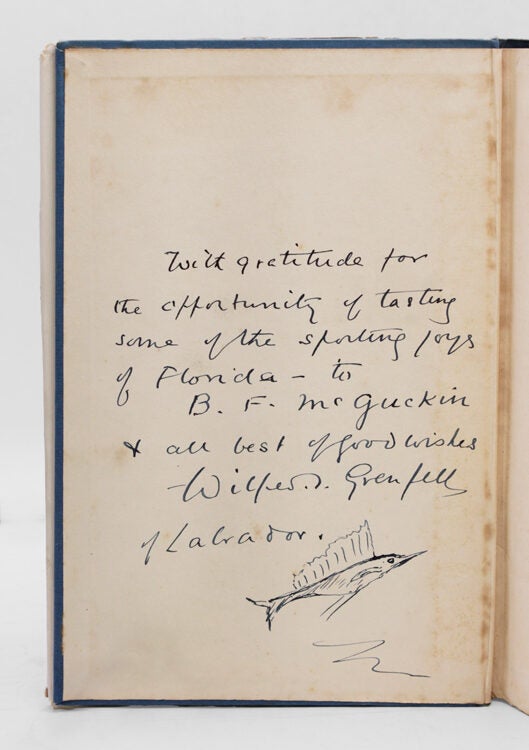 With gratitude for
the opportunity of tasting
some of the sporting joys
of Florida – to
B. F. McGuckin
& all best of good wishes
Wilfred. T. Grenfell
of Labrador.